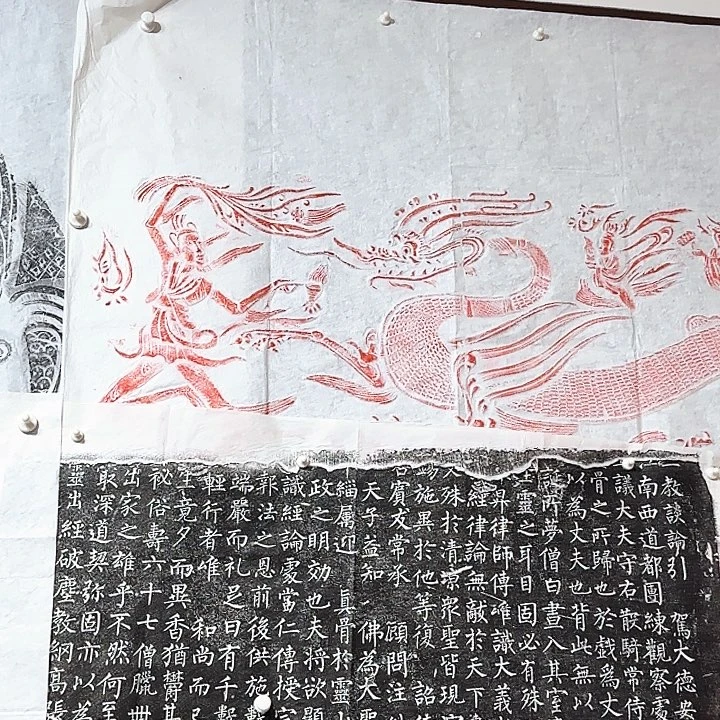 教談論引 駕大德安
南西道都團練觀察處
議大夫守右散騎常侍
骨之所歸也於戲為丈
以為丈夫也背此無以
誕所夢僧白晝入其室
生靈之耳目固必有殊
昇律師傳唯識大義
經律論無敵於天下
文殊於清涼眾聖皆現
錫施異於他等復 詔
賓友常承 顧問注
天子益知 佛為大聖
緇屬迎 真骨於靈山
政之明効也夫將欲顯
識經論處當仁傳授宗
郭法之恩前後供施數
端嚴而礼足日有千數
輕行者唯 和尚而已
生竟夕而異香猶鬱其
祕俗壽六十七僧臘卌
出家之雄乎不然何至
取深道契弥固亦以為
靈出 經破塵教網高張